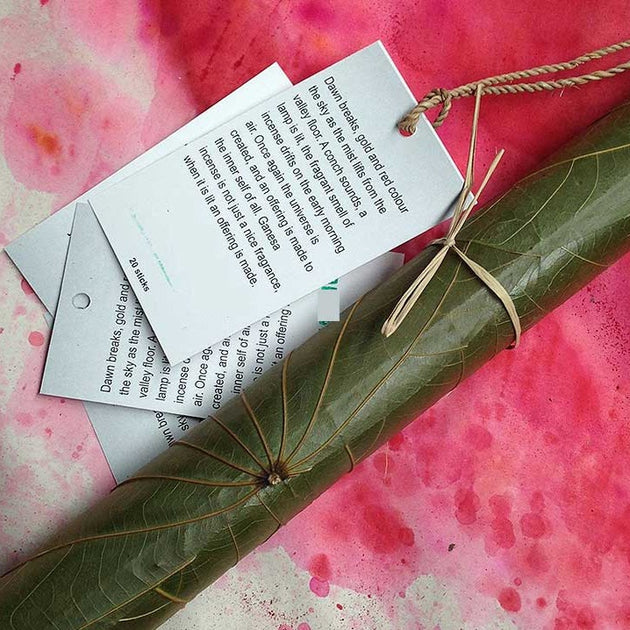 Dawn breaks, gold and red colour
the sky as the mist lifts from the
valley floor. A conch sounds, a
lamp is lit, the fragrant smell of
incense drifts on the early morning
air. Once again the universe is
created, and an offering is made to
the inner self of all. Ganesa
incense is not just a nice fragrance,
when it is lit an offering is made.
20 sticks
Dawn breaks, gold and
the sky as the mist
valley floor. A
lamp is
incense
air. Once
created, and an
inner self of all
is not just a
an offering
Dawn